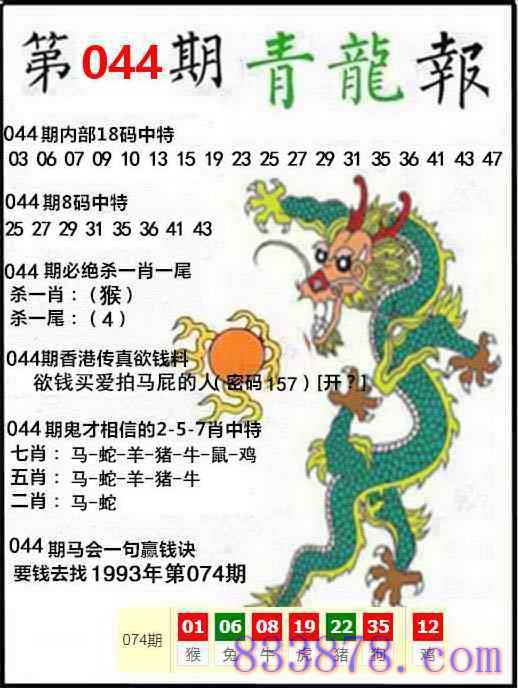 第044期青龍報
044期内部18码中特
03 06 07 09 10 13 15 19 23 25 27 29 31 35 36 41 43 47
044期8码中特
25 27 29 31 35 36 41 43
044 期必绝杀一肖一尾
杀一肖：（猴）
杀一尾：（4）
044期香港传真欲钱料
欲钱买爱拍马屁的人(密码157）[开？]
044期鬼才相信的2-5-7肖中特
七肖：马-蛇-羊-猪-牛-鼠-鸡
五肖：马-蛇-羊-猪-牛
二肖：马-蛇
044期马会一句赢钱诀
要钱去找1993年第074期
074期 01 06 08 19 22 35 12
猴 兔 牛 虎 猪 狗 鸡
833878.com